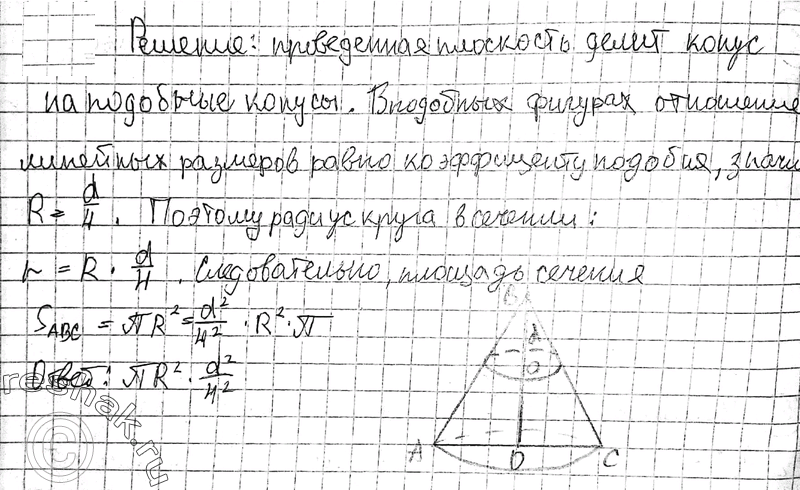 Решение: проведенная плоскость делит конус
на подобные конусы. В подобных фигурах отношение
линейных размеров равно коэффиценту подобия, значи
R = d/4. Поэтому радиус круга в сечении:
r = R · d/4. Следовательно, площадь сечения
S ABC = πR² = d²/4² · R² · π
Ответ: πR² · d²/4²
B
d
O
A
O
C
reshak.ru